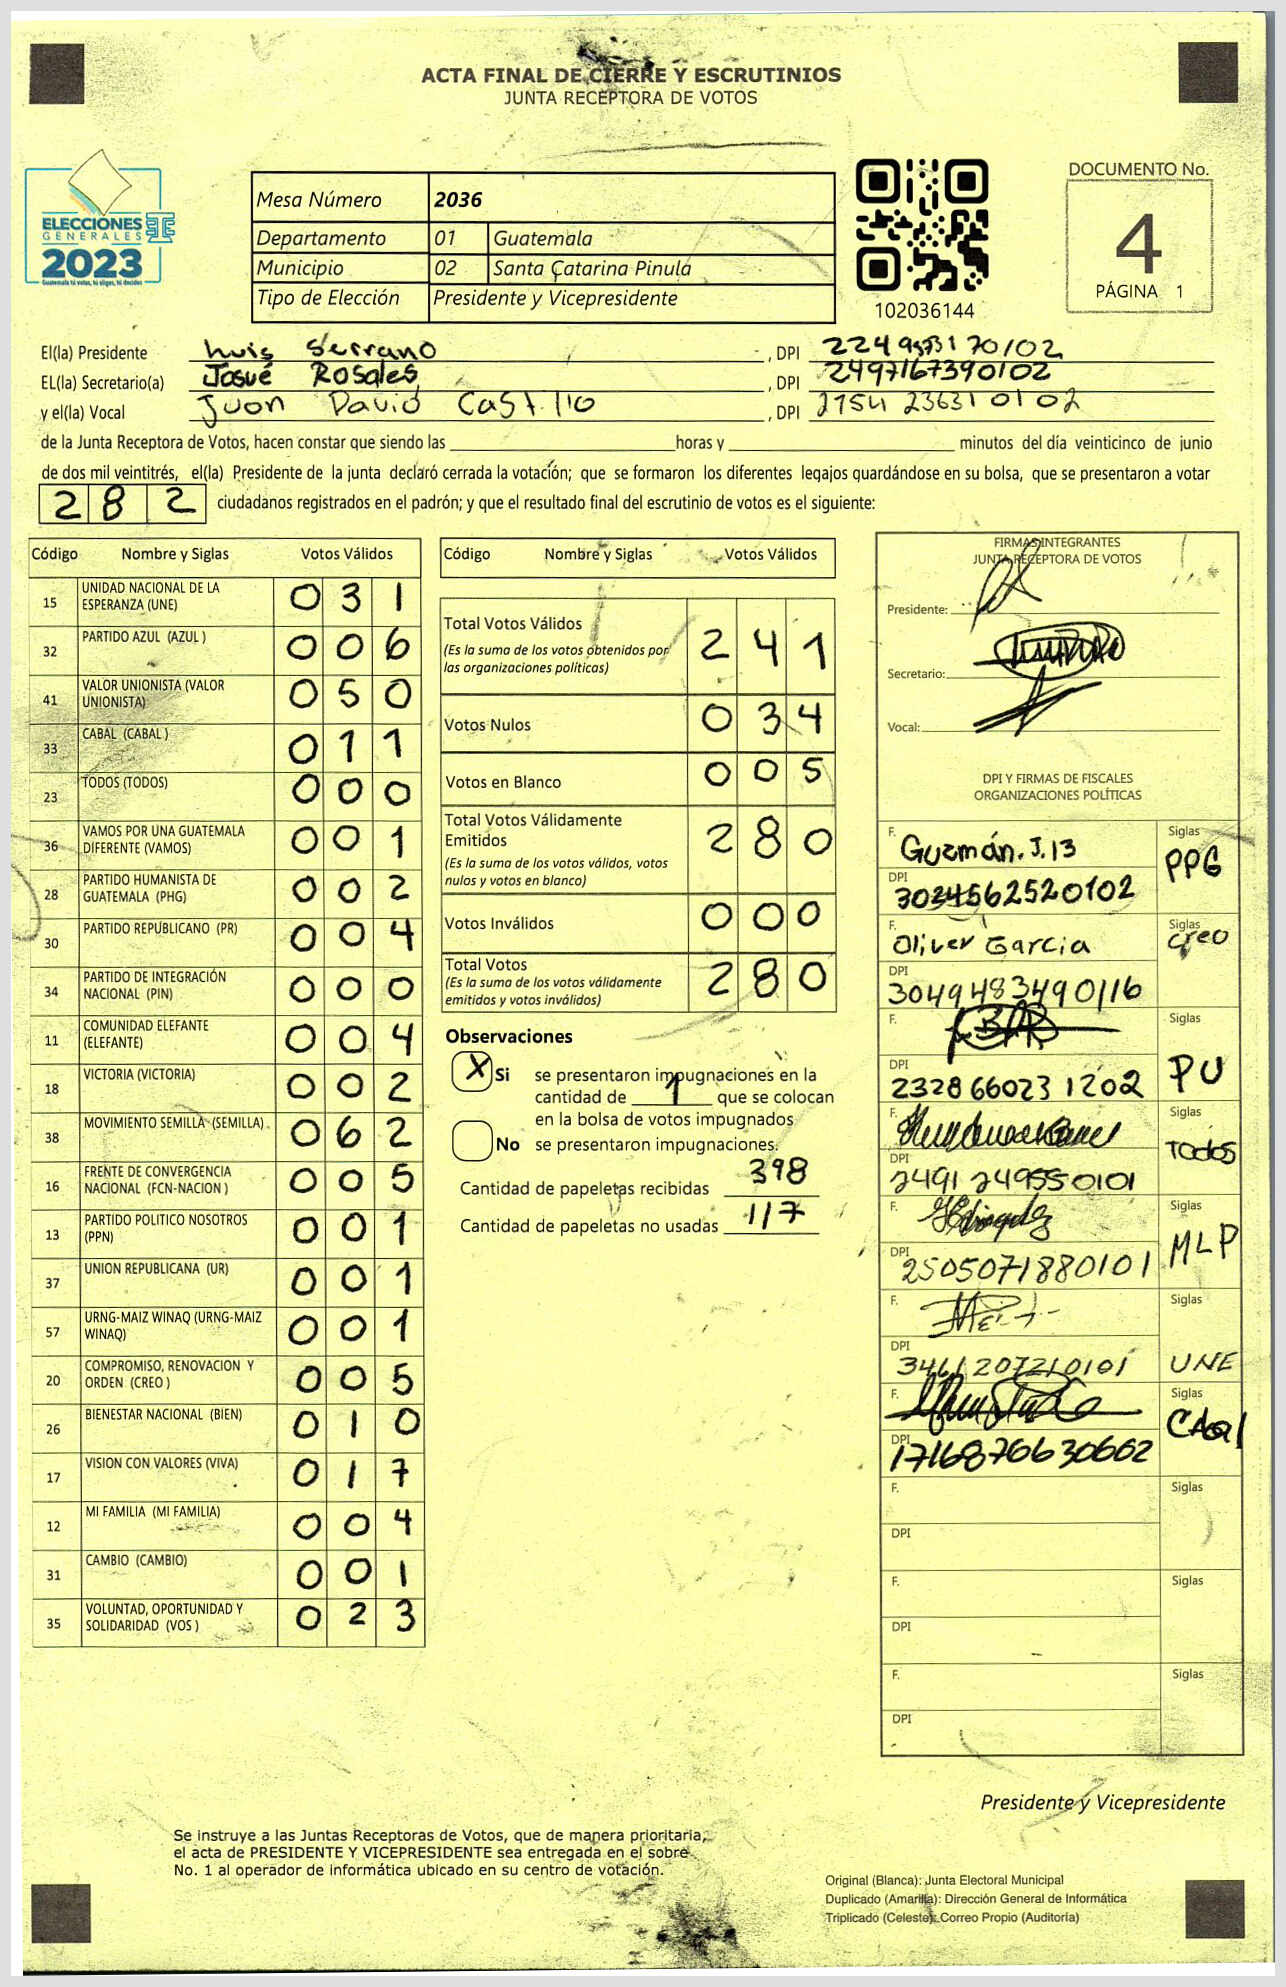 ACTA FINAL DE CIERRE Y ESCRUTINIOS
JUNTA RECEPTORA DE VOTOS
ELECCIONES
GENERALES
2023
Guatemala tú votas, tú eliges, tú decides
Mesa Número 2036
Departamento 01 Guatemala
Municipio 02 Santa Catarina Pinula
Tipo de Elección Presidente y Vicepresidente
102036144
DOCUMENTO No.
4
PÁGINA 1
El(la) Presidente Luis Serrano , DPI
EL(la) Secretario(a) Josué Rosales , DPI 2497167390102
y el(la) Vocal Juan David Castillo , DPI 2754 23631 0102
de la Junta Receptora de Votos, hacen constar que siendo las horas y minutos del día veinticinco de junio
de dos mil veintitrés, el(la) Presidente de la junta declaró cerrada la votación; que se formaron los diferentes legajos quardándose en su bolsa, que se presentaron a votar
282 ciudadanos registrados en el padrón; y que el resultado final del escrutinio de votos es el siguiente:
Código Nombre y Siglas Votos Válidos
15 UNIDAD NACIONAL DE LA ESPERANZA (UNE) 031
32 PARTIDO AZUL (AZUL ) 006
41 VALOR UNIONISTA (VALOR UNIONISTA) 050
33 CABAL (CABAL ) 011
23 TODOS (TODOS) 000
36 VAMOS POR UNA GUATEMALA DIFERENTE (VAMOS) 001
28 PARTIDO HUMANISTA DE GUATEMALA (PHG) 002
30 PARTIDO REPUBLICANO (PR) 004
34 PARTIDO DE INTEGRACIÓN NACIONAL (PIN) 000
11 COMUNIDAD ELEFANTE (ELEFANTE) 004
18 VICTORIA (VICTORIA) 002
38 MOVIMIENTO SEMILLA (SEMILLA) 062
16 FRENTE DE CONVERGENCIA NACIONAL (FCN-NACION ) 005
13 PARTIDO POLITICO NOSOTROS (PPN) 001
37 UNION REPUBLICANA (UR) 001
57 URNG-MAIZ WINAQ (URNG-MAIZ WINAQ) 001
20 COMPROMISO, RENOVACION Y ORDEN (CREO ) 005
26 BIENESTAR NACIONAL (BIEN) 010
17 VISION CON VALORES (VIVA) 017
12 MI FAMILIA (MI FAMILIA) 004
31 CAMBIO (CAMBIO) 001
35 VOLUNTAD, OPORTUNIDAD Y SOLIDARIDAD (VOS ) 023
Código Nombre y Siglas Votos Válidos
Total Votos Válidos 241
(Es la suma de los votos obtenidos por
las organizaciones políticas)
Votos Nulos 034
Votos en Blanco 005
Total Votos Válidamente
Emitidos 280
(Es la suma de los votos válidos, votos
nulos y votos en blanco)
Votos Inválidos 000
Total Votos 280
(Es la suma de los votos válidamente
emitidos y votos inválidos)
Observaciones
X Si se presentaron impugnaciones en la
cantidad de 1 que se colocan
en la bolsa de votos impugnados
No se presentaron impugnaciones.
Cantidad de papeletas recibidas 398
Cantidad de papeletas no usadas 117
FIRMAS INTEGRANTES
JUNTA RECEPTORA DE VOTOS
Presidente:
Secretario:
Vocal:
DPI Y FIRMAS DE FISCALES
ORGANIZACIONES POLÍTICAS
F. Guzmán.J.13 Siglas PPG
DPI 3024562520102
F. Oliver Garcia Siglas creo
DPI 3049483490116
F. Siglas PU
DPI 2328 66023 1202
F. Siglas Todos
DPI 2491 249550101
F. Siglas MLP
DPI 2505071880101
F. Siglas UNE
DPI 3461207210101
F. Siglas CABAl
DPI 1716876630602
F. Siglas
DPI
F. Siglas
DPI
F. Siglas
DPI
Presidente y Vicepresidente
Se instruye a las Juntas Receptoras de Votos, que de manera prioritaria,
el acta de PRESIDENTE Y VICEPRESIDENTE sea entregada en el sobre
No. 1 al operador de informática ubicado en su centro de votación.
Original (Blanca): Junta Electoral Municipal
Duplicado (Amarilla): Dirección General de Informática
Triplicado (Celeste): Correo Propio (Auditoría)